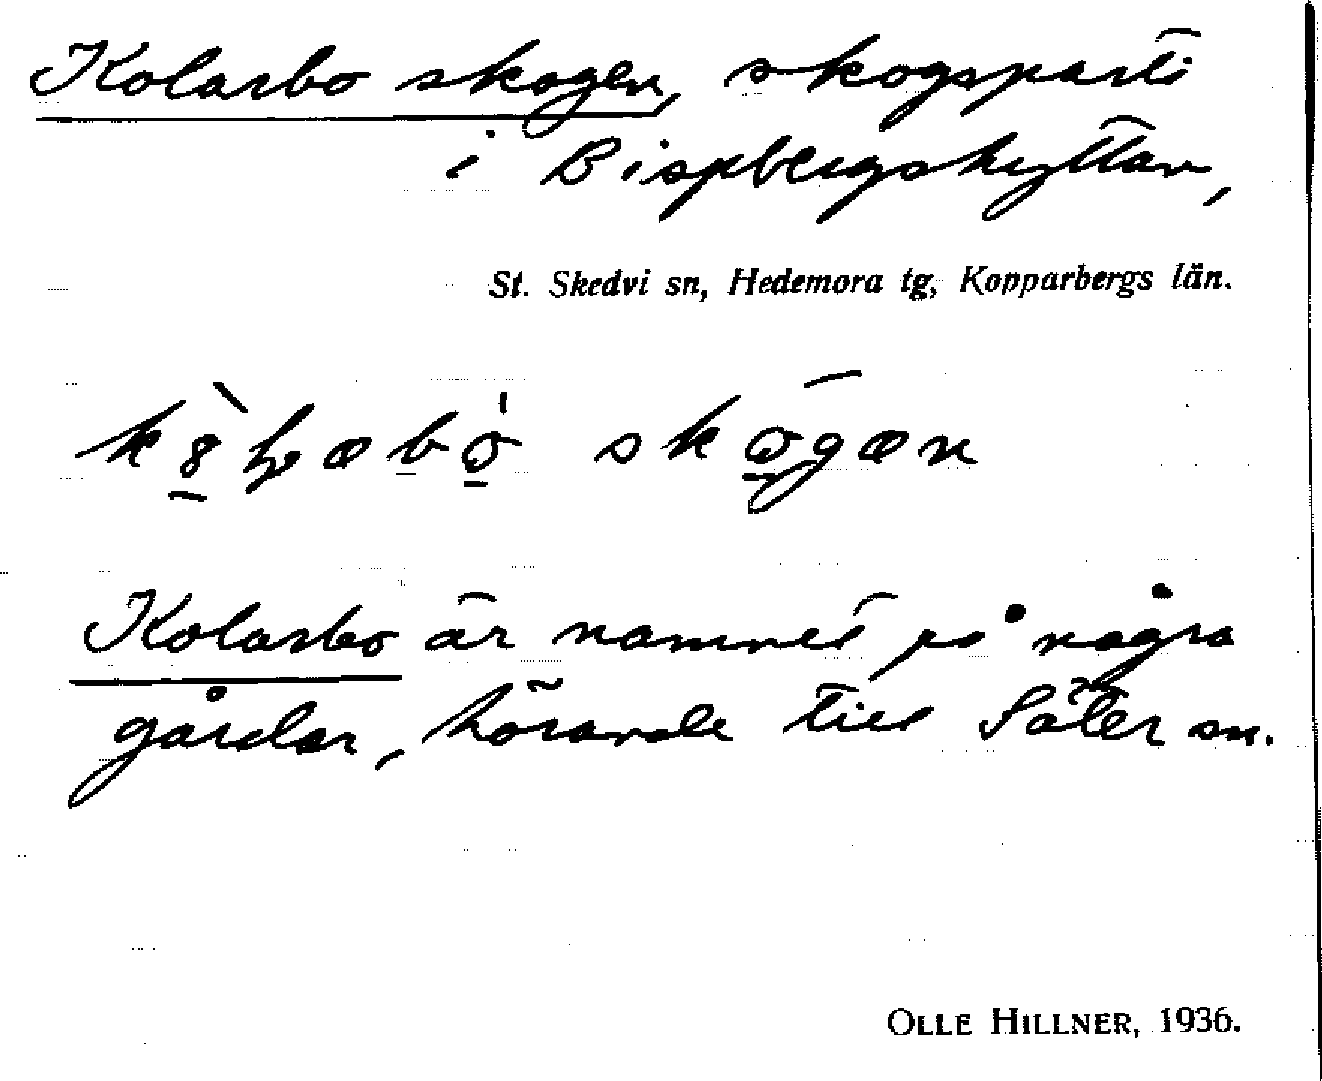 Kolarbo skogen, skogsparti
i Bispbergshyttan,
St. Skedvi sn, Hedemora tg, Kopparbergs län.
Kolarbo är namnet på några
gårdar, hörande till Säter sn.
OLLE HILLNER, 1936.